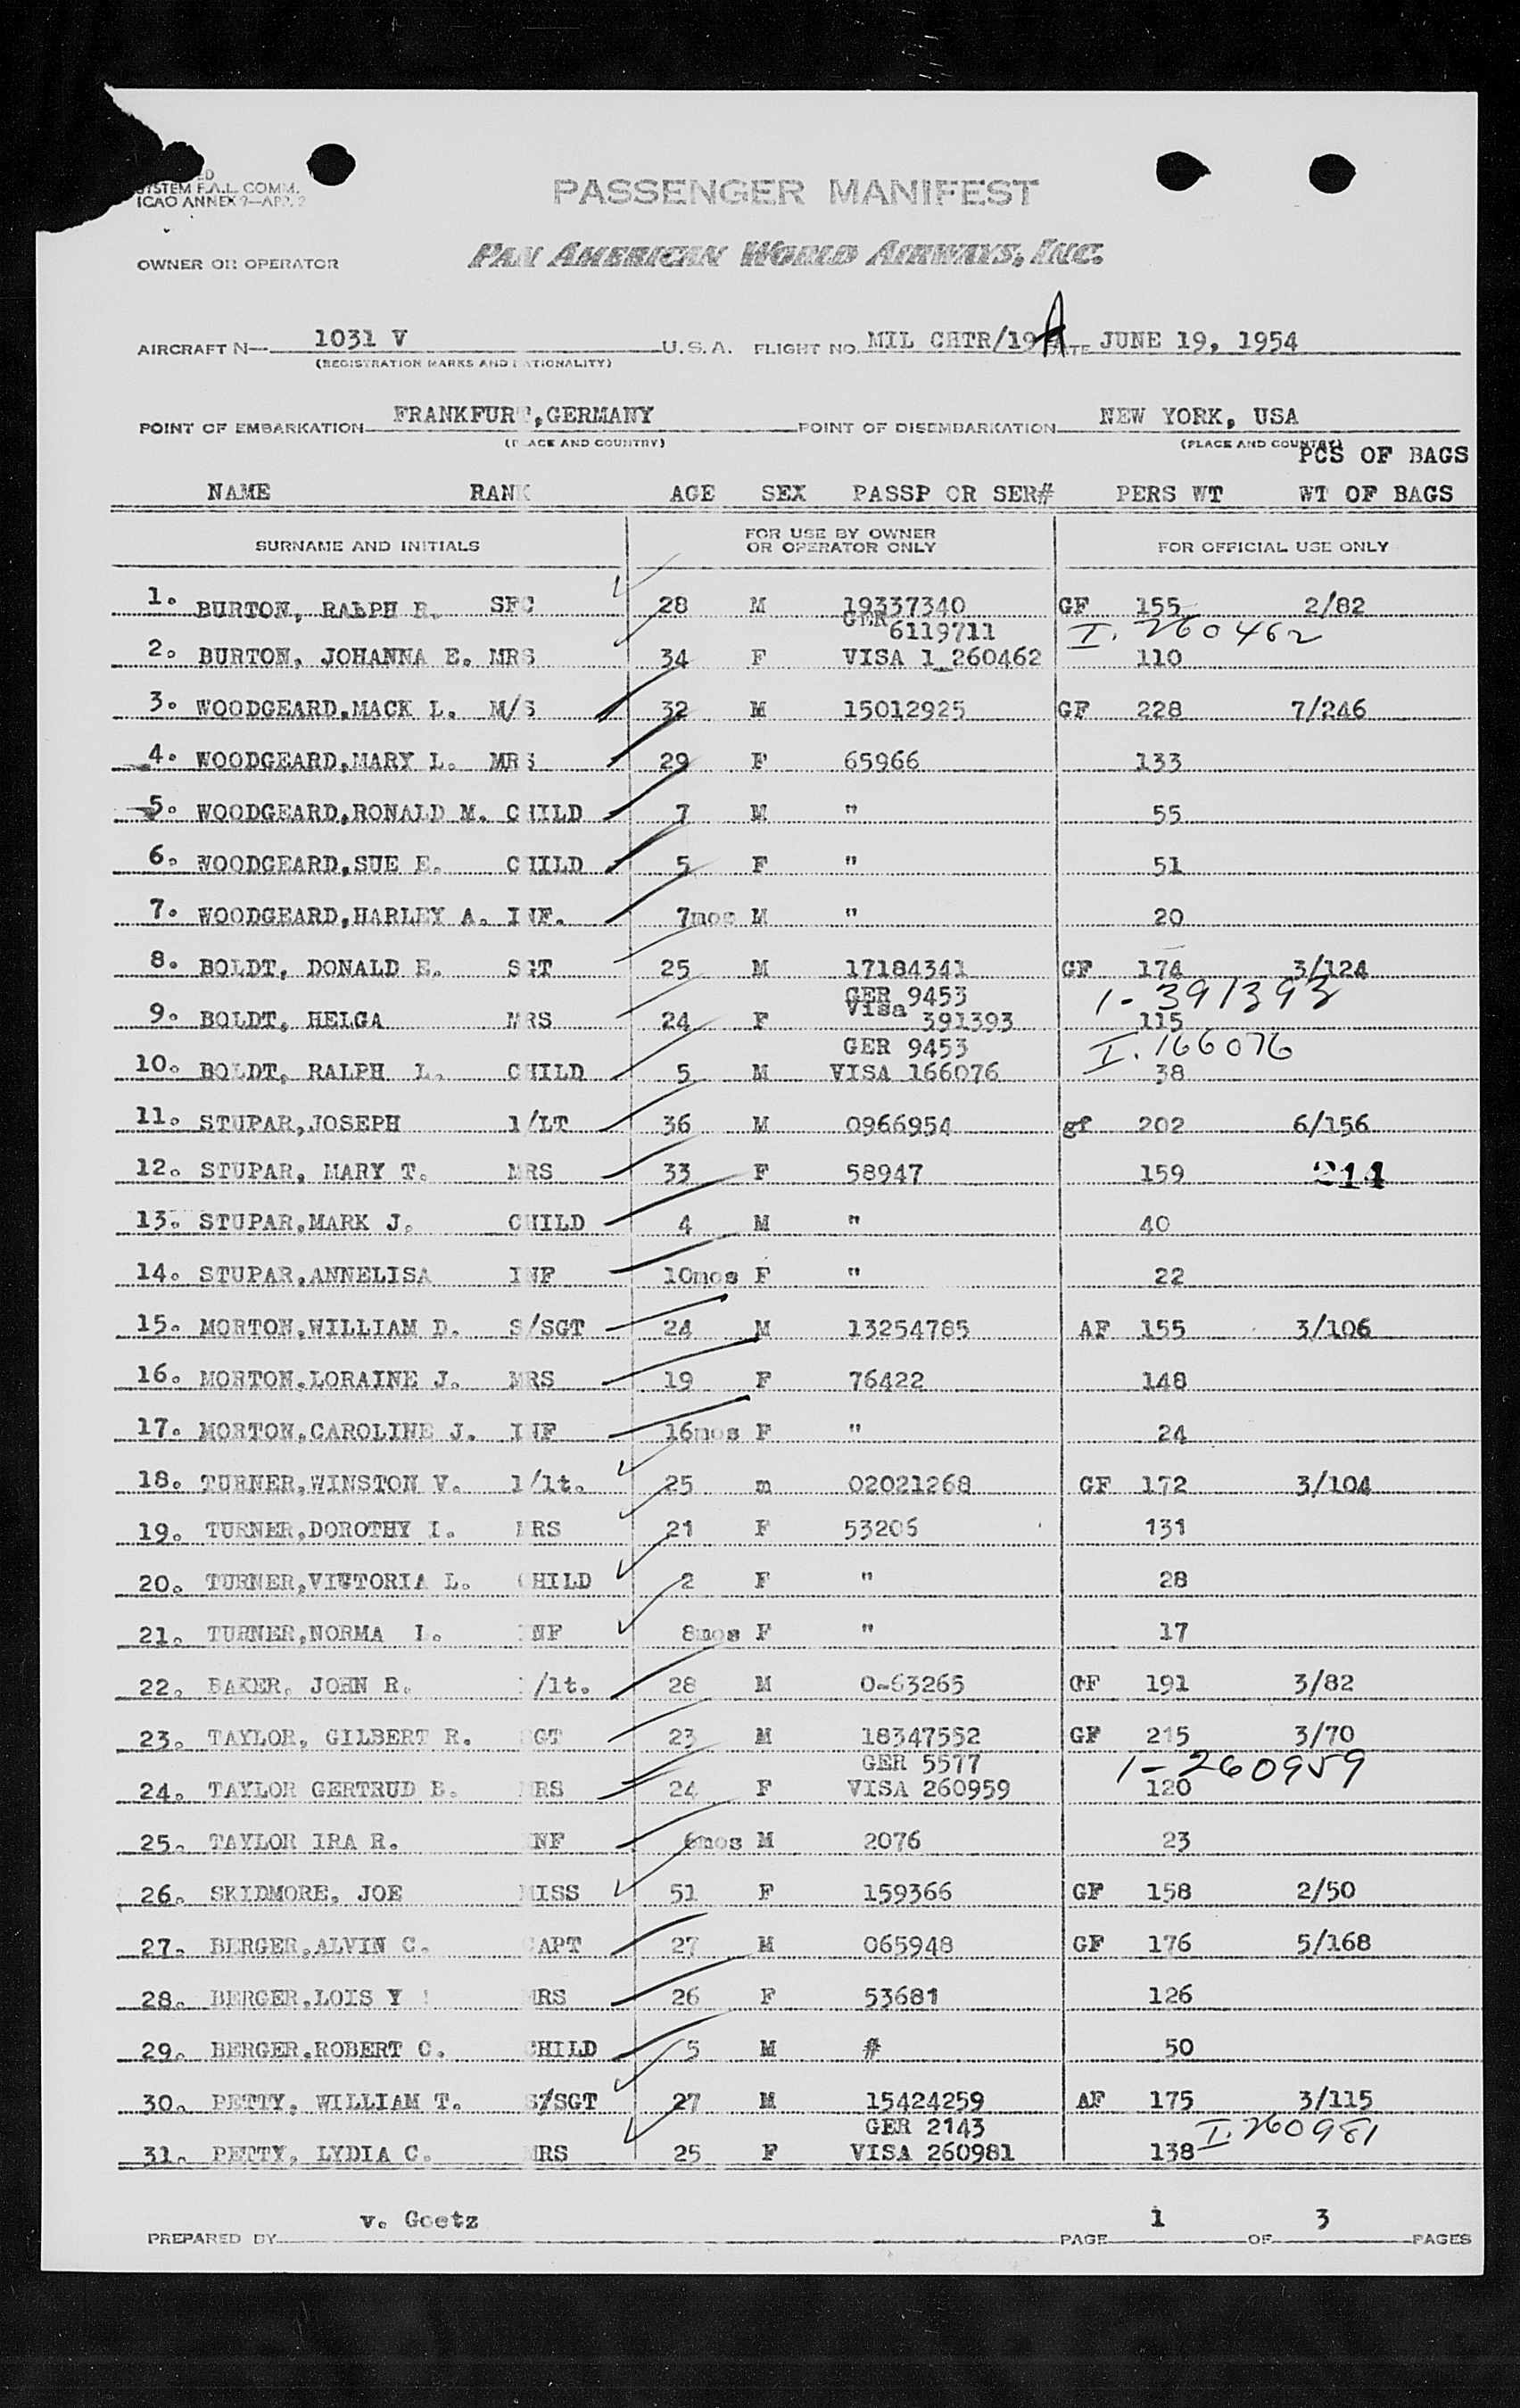 SYSTEM F.A.L. COMM.
ICAO ANNEX 9—APP. 2
PASSENGER MANIFEST
OWNER OR OPERATOR PAN AMERICAN WORLD AIRWAYS, INC.
AIRCRAFT N— 1031 V U.S.A. FLIGHT NO. MIL CHTR/19 A DATE JUNE 19, 1954
(REGISTRATION MARKS AND NATIONALITY)
POINT OF EMBARKATION FRANKFURT, GERMANY POINT OF DISEMBARKATION NEW YORK, USA
(PLACE AND COUNTRY) (PLACE AND COUNTRY)
PCS OF BAGS
NAME RANK AGE SEX PASSP OR SER# PERS WT WT OF BAGS
SURNAME AND INITIALS FOR USE BY OWNER OR OPERATOR ONLY FOR OFFICIAL USE ONLY
1. BURTON, RALPH R. SFC 28 M 19337340 GF 155 2/82
GER 6119711 I. 260462
2. BURTON, JOHANNA E. MRS 34 F VISA 1_260462 110
3. WOODGEARD,MACK L. M/S 32 M 15012925 GF 228 7/246
4. WOODGEARD,MARY L. MRS 29 F 65966 133
5. WOODGEARD,RONALD M. CHILD 7 M " 55
6. WOODGEARD,SUE E. CHILD 5 F " 51
7. WOODGEARD,HARLEY A. INF. 7mos M " 20
8. BOLDT, DONALD E. SGT 25 M 17184341 GF 174 3/124
GER 9453 1-391393
9. BOLDT, HELGA MRS 24 F Visa 391393 115
GER 9453 I. 166076
10. BOLDT, RALPH L. CHILD 5 M VISA 166076 38
11. STUPAR,JOSEPH 1/LT 36 M 0966954 gf 202 6/156
12. STUPAR, MARY T. MRS 33 F 58947 159 214
13. STUPAR,MARK J. CHILD 4 M " 40
14. STUPAR,ANNELISA INF 10mos F " 22
15. MORTON,WILLIAM D. S/SGT 24 M 13254785 AF 155 3/106
16. MORTON,LORAINE J. MRS 19 F 76422 148
17. MORTON,CAROLINE J. INF 16mos F " 24
18. TURNER,WINSTON V. 1/lt. 25 m 02021268 GF 172 3/104
19. TURNER,DOROTHY I. MRS 21 F 53206 131
20. TURNER,VICTORIA L. CHILD 2 F " 28
21. TURNER,NORMA L. INF 8mos F " 17
22. BAKER, JOHN R. /lt. 28 M O-63265 GF 191 3/82
23. TAYLOR, GILBERT R. SGT 23 M 18347552 GF 215 3/70
GER 5577 1-260959
24. TAYLOR GERTRUD B. MRS 24 F VISA 260959 120
25. TAYLOR IRA R. INF 6mos M 2076 23
26. SKIDMORE, JOE MISS 51 F 159366 GF 158 2/50
27. BERGER,ALVIN C. CAPT 27 M 065948 GF 176 5/168
28. BERGER,LOIS Y MRS 26 F 53681 126
29. BERGER,ROBERT C. CHILD 5 M # 50
30. PETTY, WILLIAM T. S/SGT 27 M 15424259 AF 175 3/115
GER 2143 I. 260981
31. PETTY, LYDIA C. MRS 25 F VISA 260981 138
PREPARED BY v. Goetz PAGE 1 OF 3 PAGES